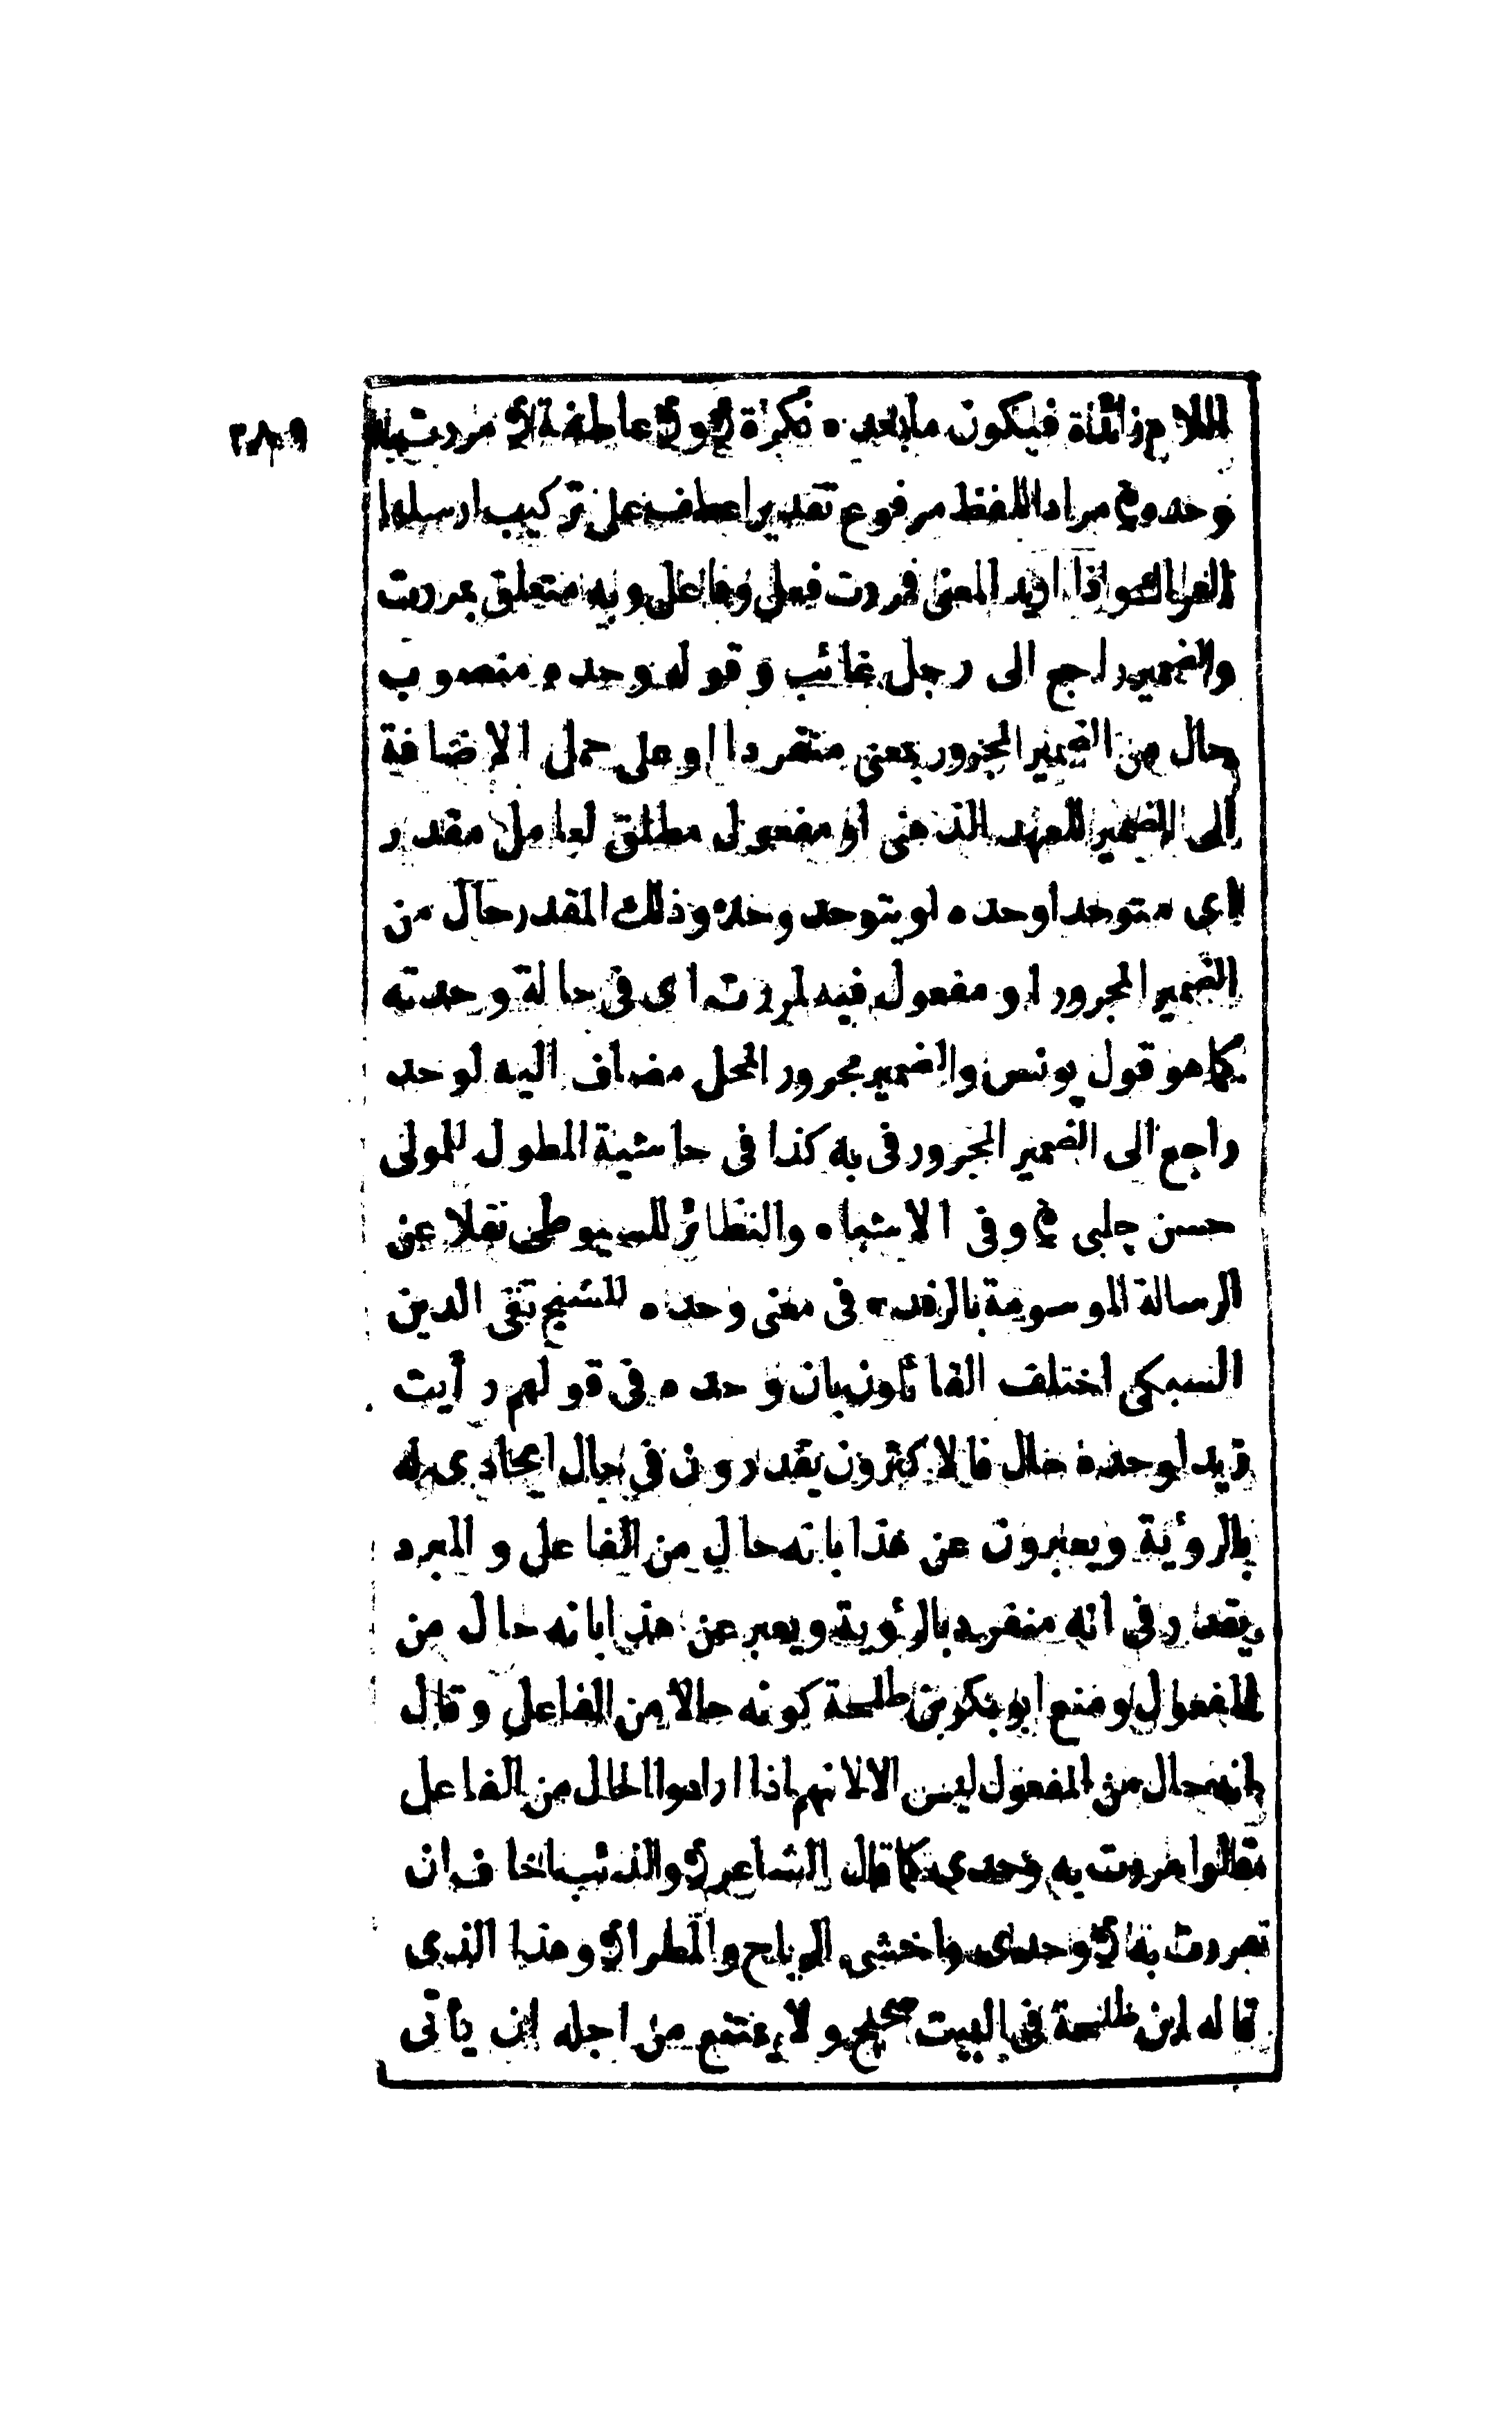 ٢٨٩
اللام زائدة فيكون ما بعده نكرة و عاطفة مررت به
وحده مراد اللفظ مرفوع تقديرا عطف على تركيب ارسلها
العراك واذا اريد المعنى فمررت فعل وفاعل وبه متعلق بمررت
والضمير راجع الى رجل غائب وقوله وحده منصوب
حال من الضمير المجرور بمعنى منفردا او على حمل الاضافة
الى الضمير للعهد الذهنى او مفعول مطلق لعامل مقدر
اى متوحدا وحده او يتوحد وحده وذلك المقدر حال من
الضمير المجرور او مفعول فيه لمررت اى فى حالة وحدته
كما هو قول يونس والضمير مجرور المحل مضاف اليه لوحد
راجع الى الضمير المجرور فى به كذا فى حاشية المطول للمولى
حسن چلبى وفى الاشباه والنظائر للسيوطى نقلا عن
الرسالة الموسومة بالرفده فى معنى وحده للشيخ تقى الدين
السبكى اختلف القائلون بان وحده فى قولهم رأيت
زيدا وحده حال فالاكثرون يقدرون فى حال ايحادى له
بالرؤية ويعبرون عن هذا بانه حال من الفاعل والمبرد
يقدر فى انه منفرد بالرؤية ويعبر عن هذا بانه حال من
المفعول ومنع ابو بكر بن طلحة كونه حالا من الفاعل وقال
انه حال من المفعول ليس الا لانهم اذا ارادوا الحال من الفاعل
قالوا مررت به وحدى كما قال الشاعر والذئب اخاف ان
مررت به وحدى واخشى الرياح والمطرا وهذا الذى
قاله ابن طلحة فى البيت صحيح ولا يمتنع من اجله ان يأتى